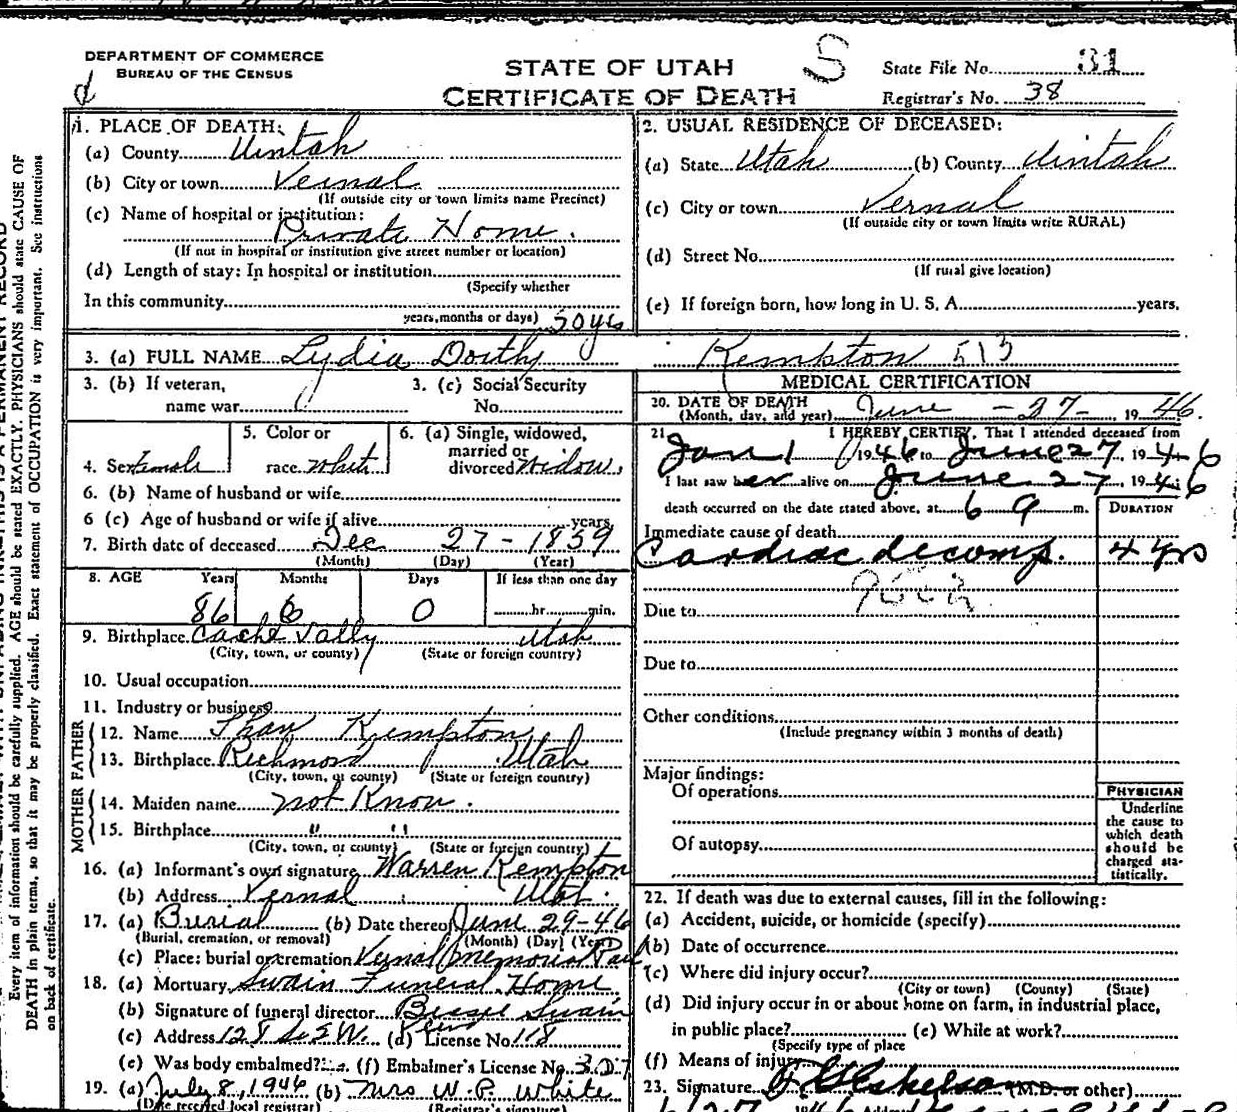 DEPARTMENT OF COMMERCE
BUREAU OF THE CENSUS
STATE OF UTAH
CERTIFICATE OF DEATH
S
State File No. 31
Registrar's No. 38
1. PLACE OF DEATH:
(a) County Uintah
(b) City or town Vernal
(If outside city or town limits name Precinct)
(c) Name of hospital or institution:
Private Home.
(If not in hospital or institution give street number or location)
(d) Length of stay: In hospital or institution
(Specify whether
In this community
years, months or days) 50 yrs
2. USUAL RESIDENCE OF DECEASED:
(a) State Utah (b) County Uintah
(c) City or town Vernal
(If outside city or town limits write RURAL)
(d) Street No.
(If rural give location)
(e) If foreign born, how long in U. S. A. years.
3. (a) FULL NAME Lydia Dorthy Kempton 513
3. (b) If veteran,
name war
3. (c) Social Security
No.
4. Sex Female
5. Color or
race White
6. (a) Single, widowed,
married or
divorced Widow.
6. (b) Name of husband or wife
6 (c) Age of husband or wife if alive years
7. Birth date of deceased Dec 27 - 1859
(Month) (Day) (Year)
8. AGE Years Months Days If less than one day
86 6 0 hr. min.
9. Birthplace Cache Vally Utah
(City, town, or county) (State or foreign country)
10. Usual occupation
11. Industry or business
FATHER
12. Name Kempton
13. Birthplace Richmond Utah
(City, town, or county) (State or foreign country)
MOTHER
14. Maiden name not Know.
15. Birthplace " "
(City, town, or county) (State or foreign country)
16. (a) Informant's own signature Warren Kempton
(b) Address Vernal Utah.
17. (a) Burial (b) Date thereof June 29-46
(Burial, cremation, or removal) (Month) (Day) (Year)
(c) Place: burial or cremation Vernal Memorial Park
18. (a) Mortuary Swain Funeral Home
(b) Signature of funeral director Swain
(c) Address (d) License No. 118
(e) Was body embalmed? (f) Embalmer's License No.
19. (a) July 8, 1946 (b) Mrs W. P. White
(Date received local registrar) (Registrar's signature)
MEDICAL CERTIFICATION
20. DATE OF DEATH
(Month, day, and year) June - 27 - 1946.
21. I HEREBY CERTIFY, That I attended deceased from
Jan 1 1946 to June 27, 1946
I last saw her alive on June 27, 1946
death occurred on the date stated above, at 6 a m.
DURATION
Immediate cause of death
Cardiac decomp. 4 yrs
Due to
Due to
Other conditions
(Include pregnancy within 3 months of death)
Major findings:
Of operations
Of autopsy
PHYSICIAN
Underline
the cause to
which death
should be
charged sta-
tistically.
22. If death was due to external causes, fill in the following:
(a) Accident, suicide, or homicide (specify)
(b) Date of occurrence
(c) Where did injury occur?
(City or town) (County) (State)
(d) Did injury occur in or about home on farm, in industrial place,
in public place? (e) While at work?
(Specify type of place
(f) Means of injury
23. Signature (M.D. or other)
Every item of information should be carefully supplied. AGE should be stated EXACTLY. PHYSICIANS should state CAUSE OF
DEATH in plain terms, so that it may be properly classified. Exact statement of OCCUPATION is very important. See instructions
on back of certificate.